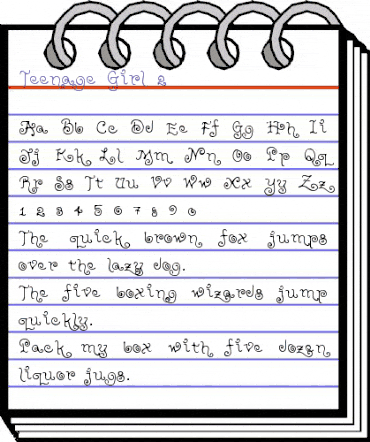 Teenage Girl 2
Aa Bb Cc Dd Ee Ff Gg Hh Ii
Jj Kk Ll Mm Nn Oo Pp Qq
Rr Ss Tt Uu Vv Ww Xx Yy Zz
1 2 3 4 5 6 7 8 9 0
The quick brown fox jumps
over the lazy dog.
The five boxing wizards jump
quickly.
Pack my box with five dozen
liquor jugs.